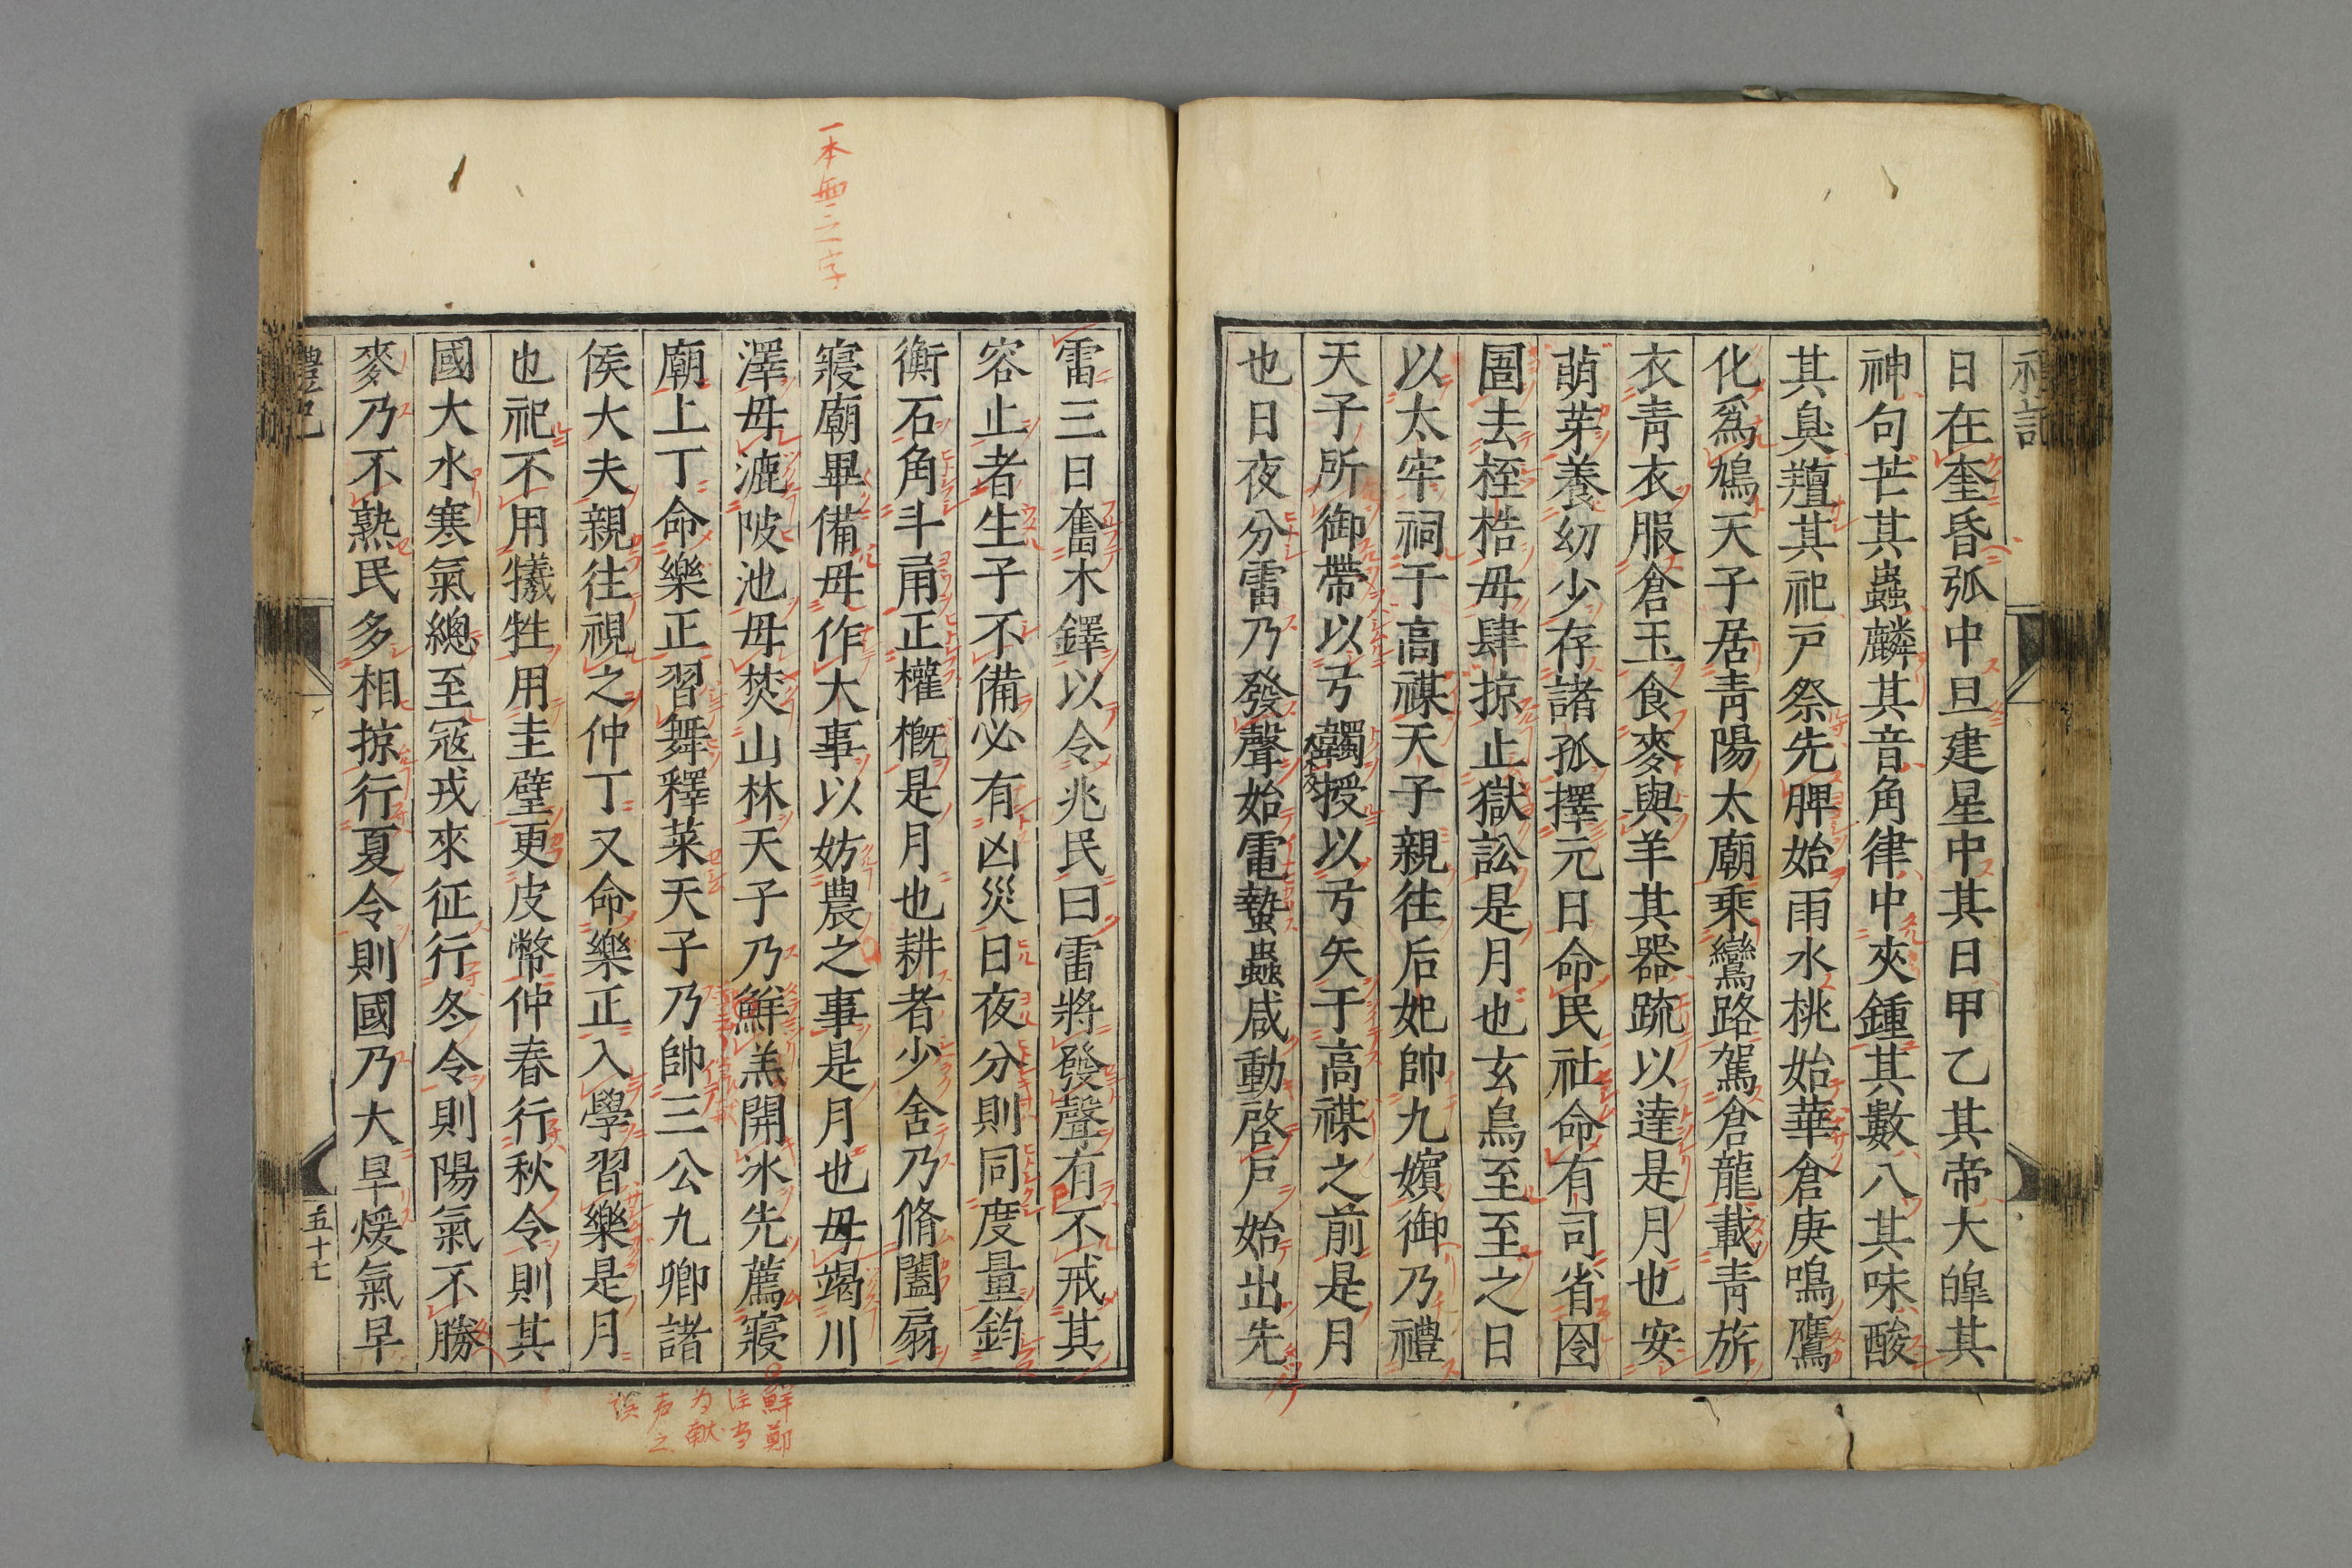 禮記
日在奎昏弧中旦建星中其日甲乙其帝大皥其
神句芒其蟲麟其音角律中夾鍾其數八其味酸
其臭羶其祀戸祭先脾始雨水桃始華倉庚鳴鷹
化爲鳩天子居青陽太廟乘鸞路駕倉龍載青旂
衣青衣服倉玉食麥與羊其器疏以達是月也安
萌芽養幼少存諸孤擇元日命民社命有司省囹
圄去桎梏毋肆掠止獄訟是月也玄鳥至至之日
以太牢祠于高禖天子親往后妃帥九嬪御乃禮
天子所御帶以弓韣授以弓矢于高禖之前是月
也日夜分雷乃發聲始電蟄蟲咸動啓戸始出先
雷三日奮木鐸以令兆民曰雷將發聲有不戒其
容止者生子不備必有凶災日夜分則同度量鈞
衡石角斗甬正權槪是月也耕者少舍乃脩闔扇
寢廟畢備毋作大事以妨農之事是月也毋竭川
澤毋漉陂池毋焚山林天子乃鮮羔開冰先薦寢
廟上丁命樂正習舞釋菜天子乃帥三公九卿諸
侯大夫親往視之仲丁又命樂正入學習樂是月
也祀不用犧牲用圭璧更皮幣仲春行秋令則其
國大水寒氣總至寇戎來征行冬令則陽氣不勝
麥乃不熟民多相掠行夏令則國乃大旱煖氣早
禮記
五十七
一本無二字
鮮鄭
注当
为献
声之
誤